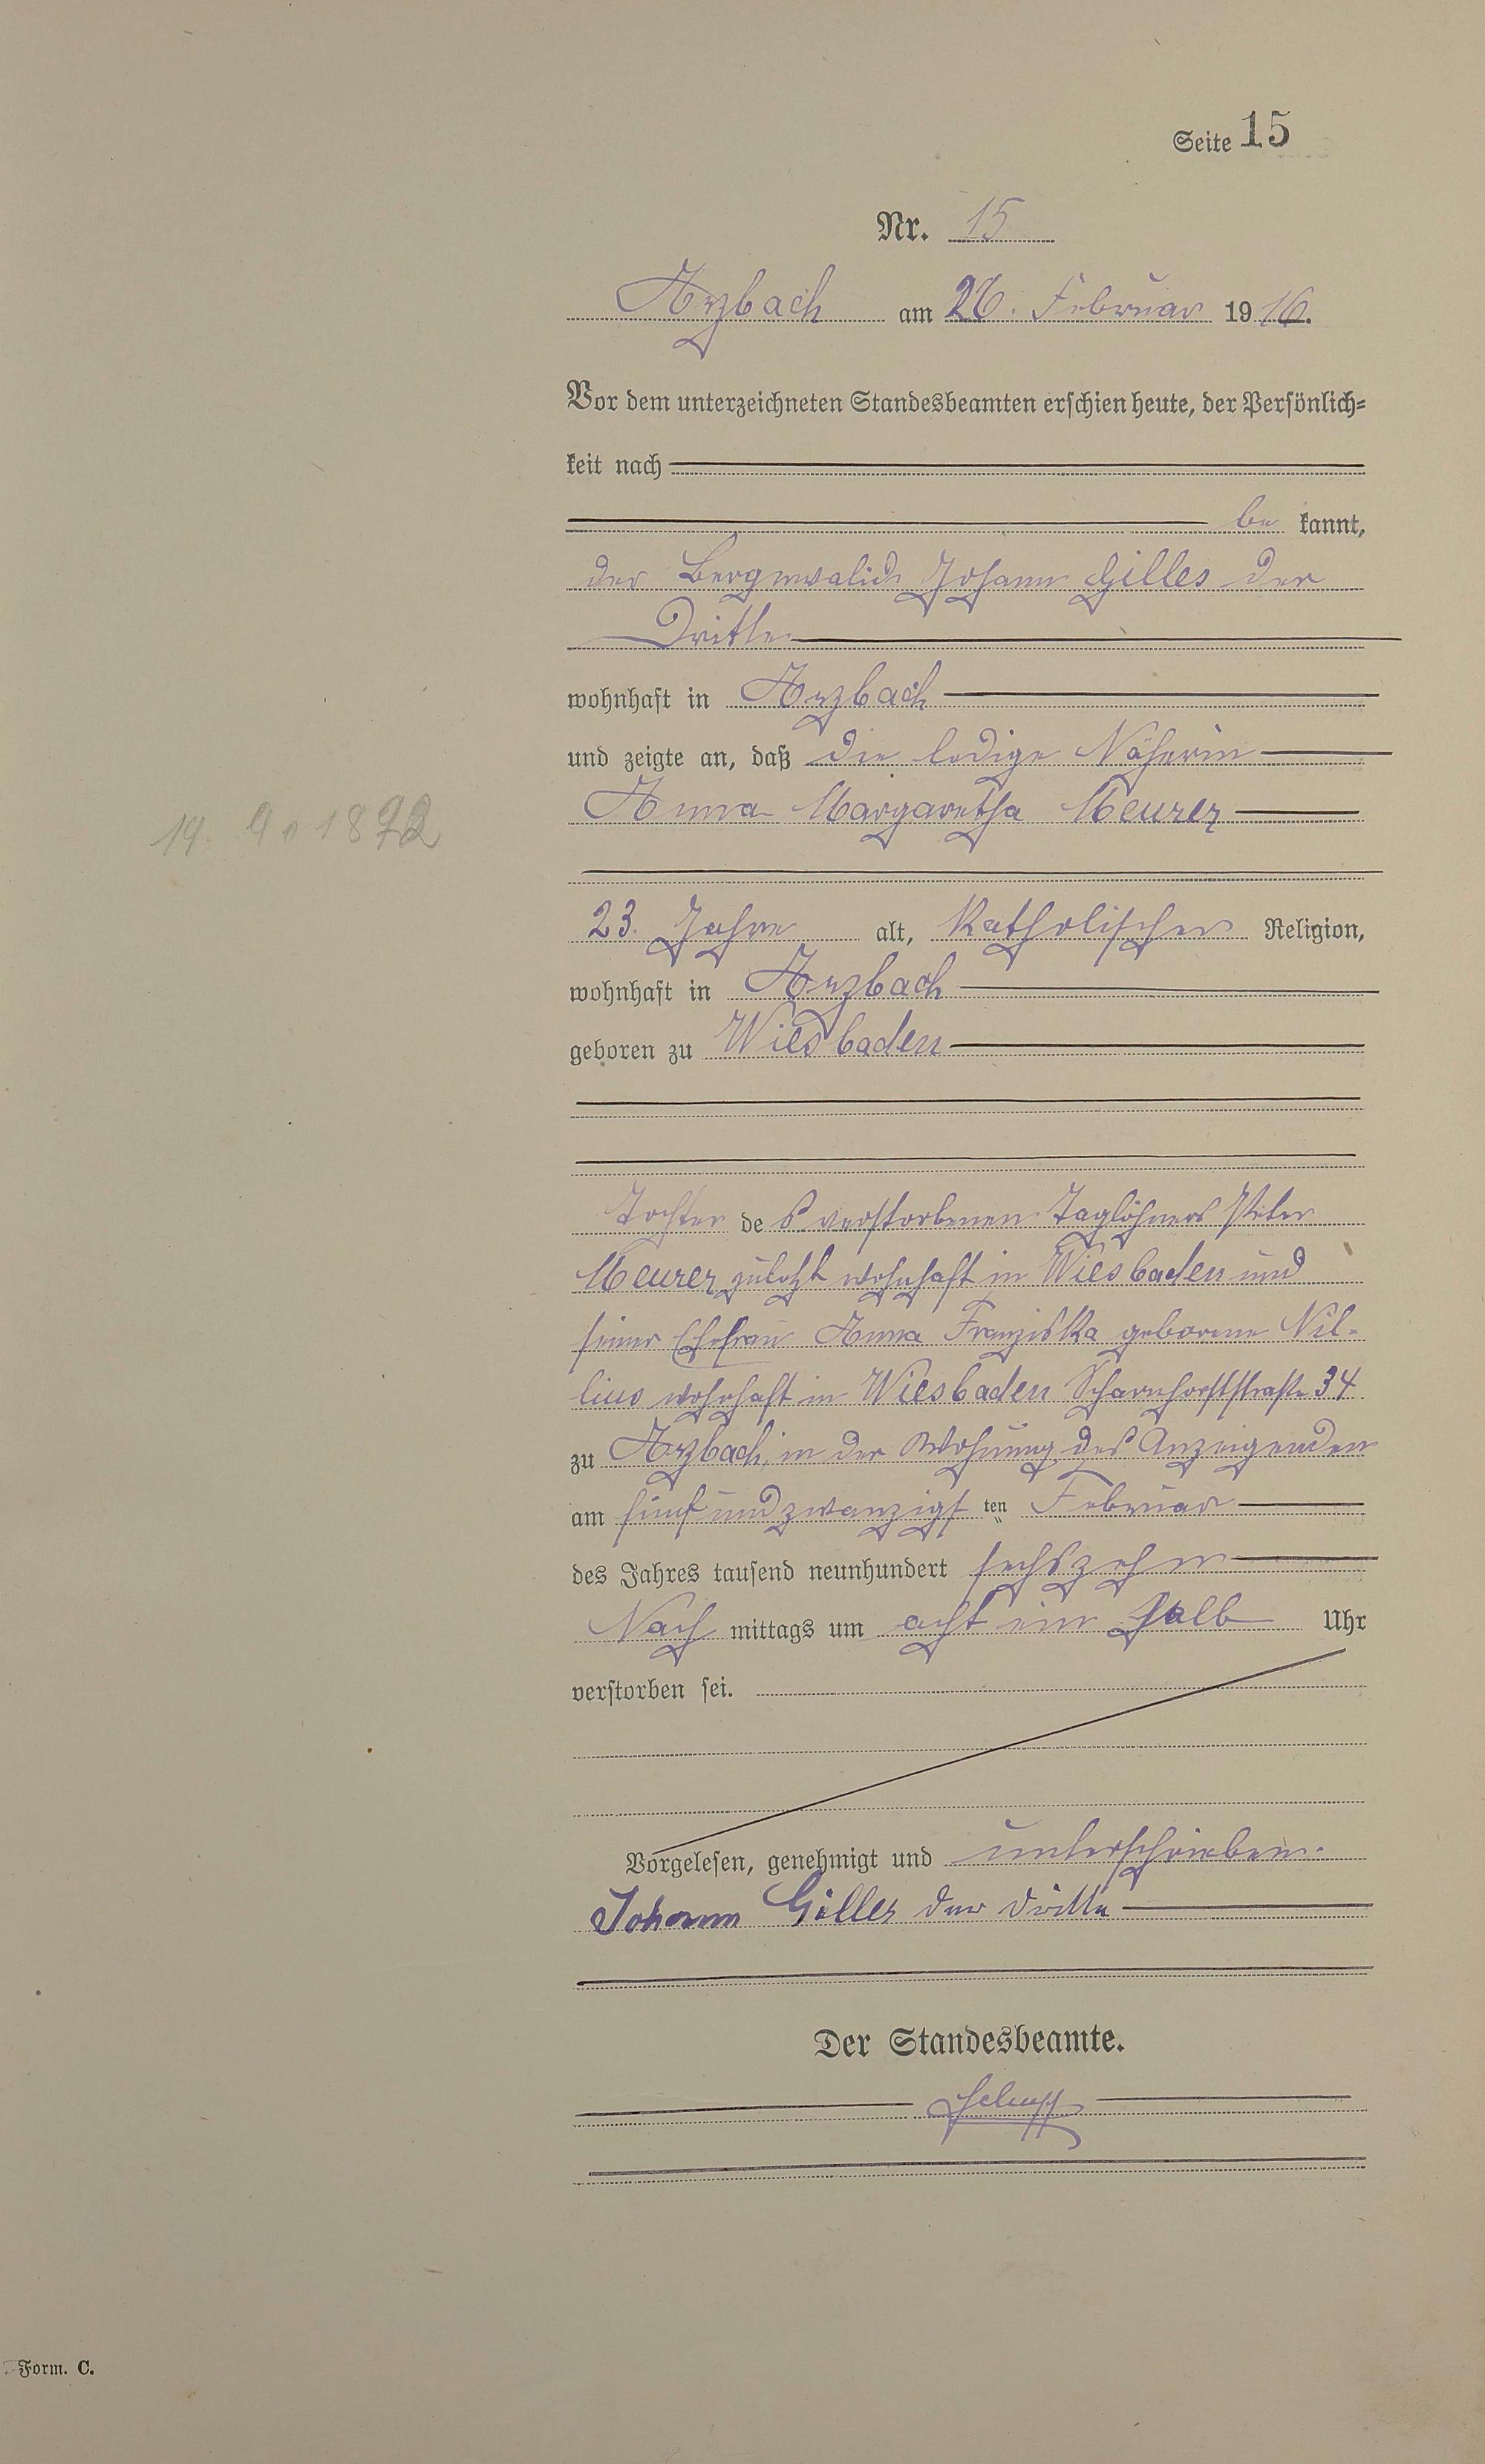 Seite 15
Nr. 15
Arzbach am 26. Februar 1916.
Vor dem unterzeichneten Standesbeamten erschien heute, der Persönlich-
keit nach
be kannt,
der Berginvalide Johann Gilles der
Dritte
wohnhaft in Arzbach
und zeigte an, daß die ledige Näherin
Anna Margaretha Meurer
19. 9. 1892
23. Jahre alt, katholischer Religion,
wohnhaft in Arzbach
geboren zu Wiesbaden
Tochter des verstorbenen Taglöhners Peter
Meurer zuletzt wohnhaft in Wiesbaden und
seiner Ehefrau Anna Franziska geborene Nil-
lius wohnhaft in Wiesbaden Scharnhorststraße 34
zu Arzbach, in der Wohnung des Anzeigenden
am fünfundzwanzigsten Februar
des Jahres tausend neunhundert sechszehn
Nach mittags um acht ein halb Uhr
verstorben sei.
Vorgelesen, genehmigt und unterschrieben.
Johann Gilles der dritte
Der Standesbeamte.
Form. C.